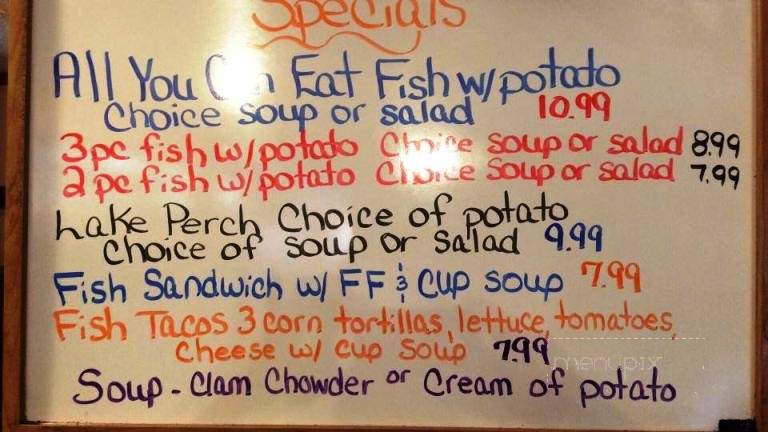 Specials
All You Can Eat Fish w/potato
Choice soup or salad 10.99
3pc fish w/potato Choice soup or salad 8.99
2pc fish w/potato Choice soup or salad 7.99
Lake Perch Choice of potato
choice of soup or salad 9.99
Fish Sandwich w/ FF & cup soup 7.99
Fish Tacos 3 corn tortillas, lettuce, tomatoes,
cheese w/ cup soup 7.99
menupix
Soup - Clam Chowder or Cream of potato